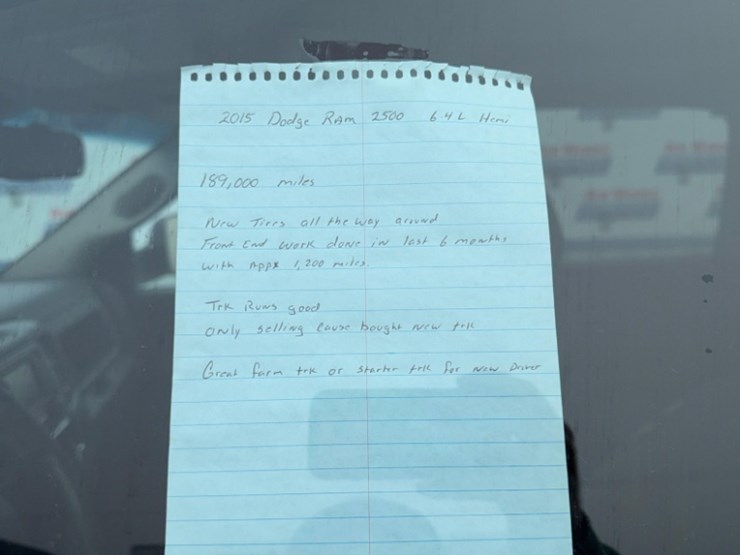 2015 Dodge RAM 2500 6.4L Hemi
189,000 miles
New Tires all the way around
Front End work done in last 6 months
with Appx 1,200 miles
Trk Runs good
Only selling cause bought new trk
Great farm trk or starter trk for new Driver